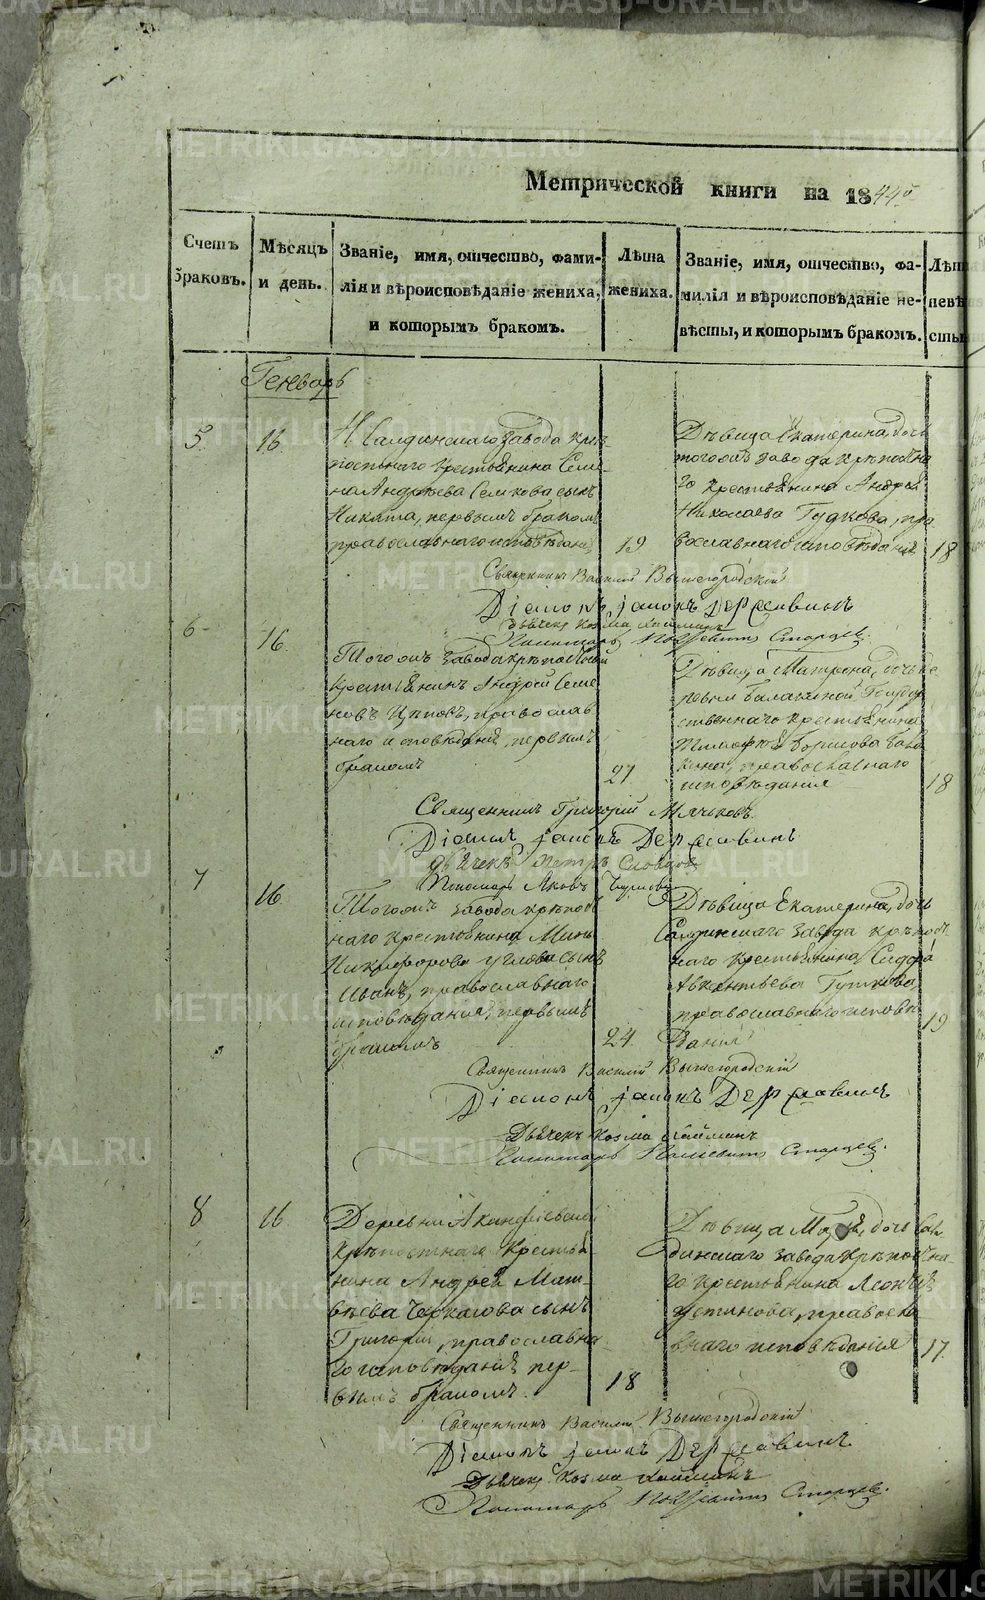 METRIKI.GASU-URAL.RU
Метрической книги на 1844й
Счетъ браковъ.
Мѣсяцъ и день.
Званіе, имя, отчество, фами-
лія и вѣроисповѣданіе жениха,
и которымъ бракомъ.
Лѣта
жениха.
Званіе, имя, отчество, фа-
милія и вѣроисповѣданіе не-
вѣсты, и которымъ бракомъ.
Генварь
5
16.
Н. Салдинскаго завода крѣ
постнаго крестьянина Семе
на Андрѣева Семкова сынъ
Никита, первымъ бракомъ
православнаго исповѣданія
19
Дѣвица Екатерина, дочь
тогожъ завода крѣпостна
го крестьянина Андрея
Николаева Гудкова, пра
вославнаго исповѣданія
18
Священникъ Василий Вышегородскій
Діаконъ Іаковъ Державинъ
Дьячекъ Козма
Пономарь Старцев.
6
16.
Тогожъ завода крѣпостной
крестьянинъ Андрей Семе
новъ православ
наго исповѣданія, первымъ
бракомъ
27
Дѣвица Матрона, дочь де
ревни Балакиной Государ
ственнаго крестьянина
Тимофея Борисова Бала
кина, православнаго
исповѣдания
18
Священникъ Григорий Мячковъ
Діаконъ Іаковъ Державинъ
Дьячекъ Петръ Словцовъ
Пономарь Яковъ
7
16.
Тогожъ завода крѣпост
наго крестьянина Мины
Никифорова Углова сынъ
Иванъ, православнаго
исповѣдания, первымъ
бракомъ
24.
Дѣвица Екатерина, дочь
Салдинскаго завода крѣпост
наго крестьянина Сидора
Авксентьева Гуткова,
православнаго исповѣ
дания
19
Священникъ Василій Вышегородскій
Діаконъ Іаковъ Державинъ
Дьячекъ Козма
Пономарь Старцев.
8
16
Деревни Аканфіевской
крѣпостнаго крестья
нина Андрея Мат-
вѣева Черкасова сынъ
Григорій, православна
го исповѣданія пер-
вымъ бракомъ.
18
Дѣвица дочь Сал
динскаго завода крѣпостна-
го крестьянина Леонтія
Устинова, правосла
внаго исповѣдания
17.
Священникъ Василий Вышегородскій
Діаконъ Іаковъ Державинъ
Дьячекъ Козма
Пономарь Старцев.